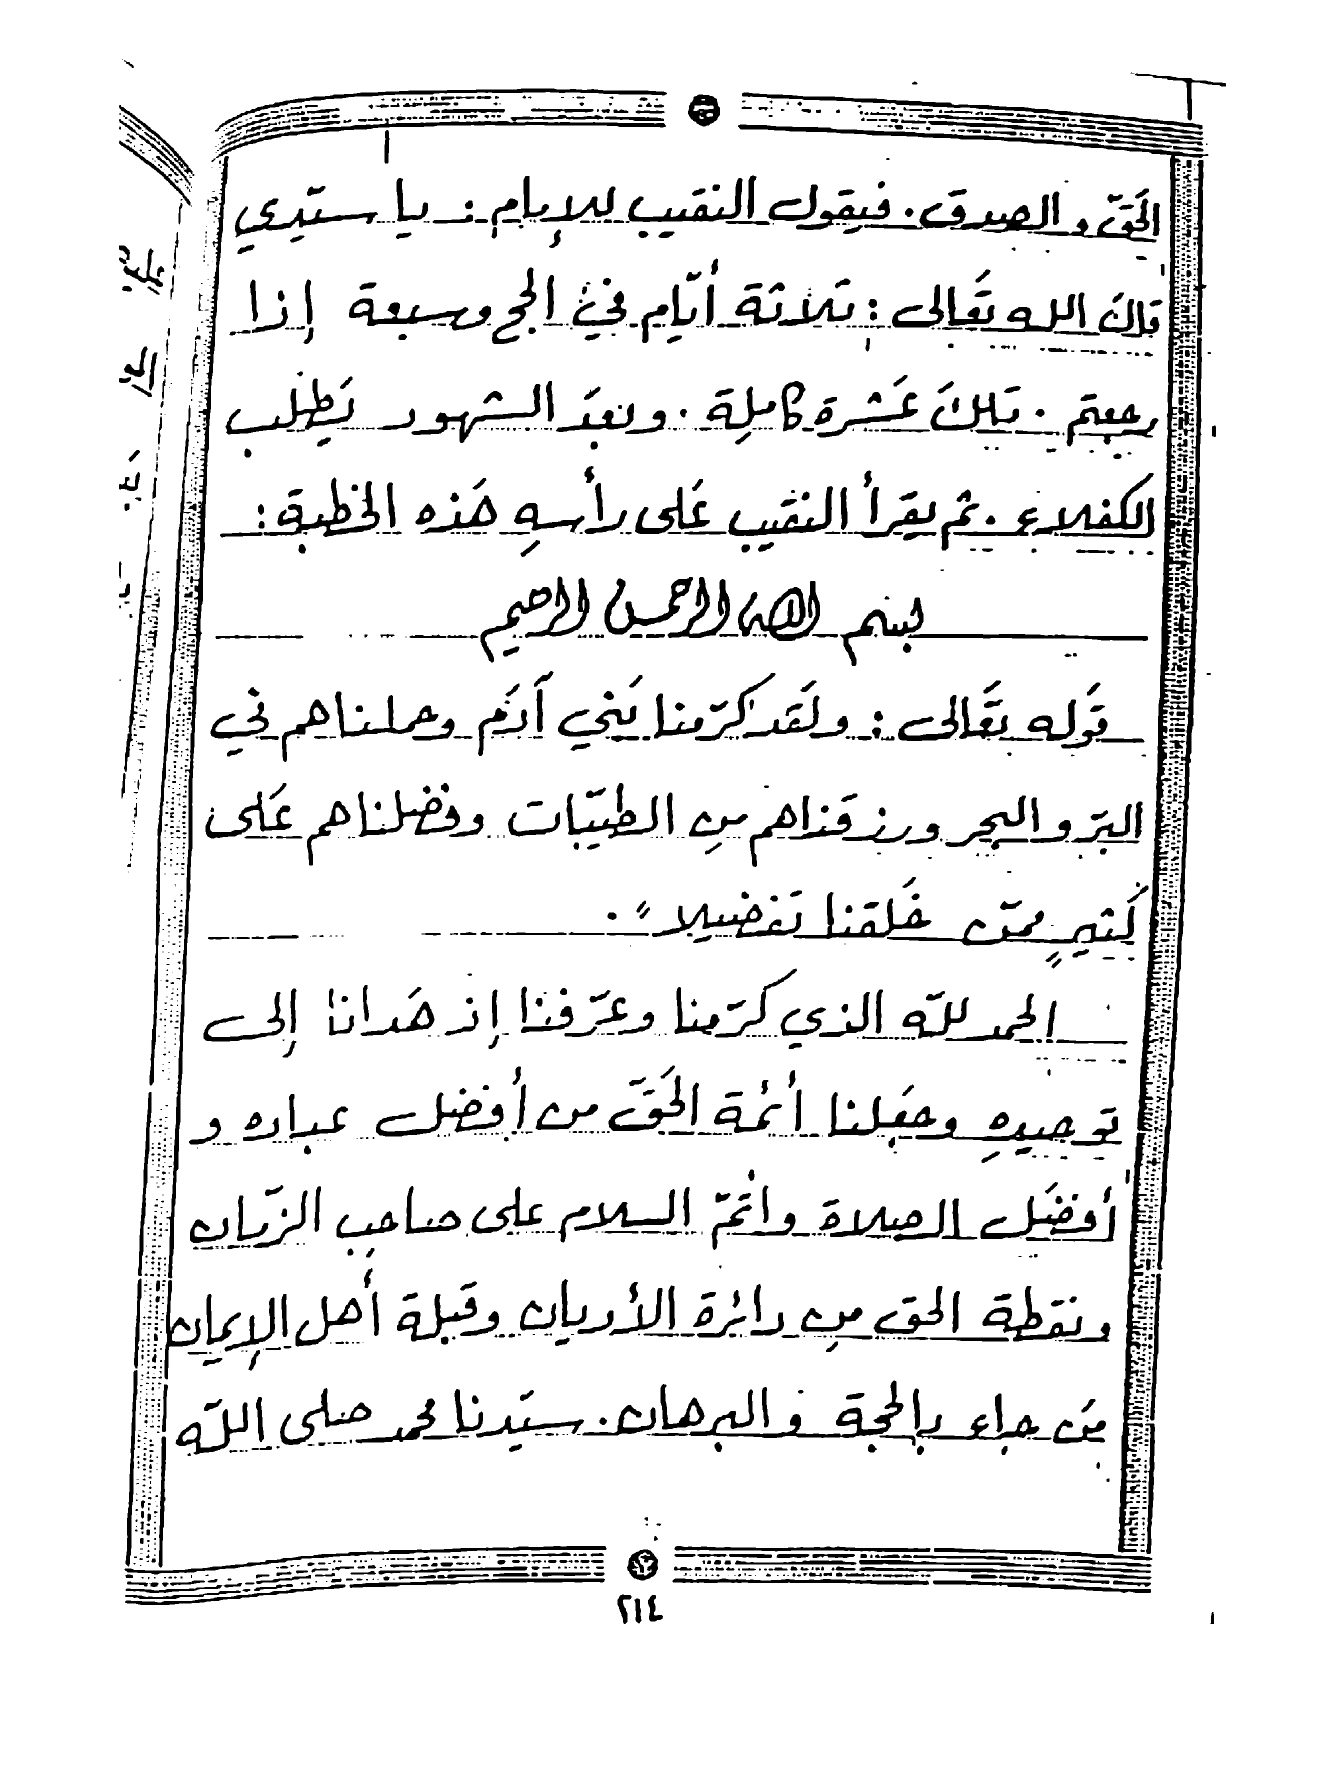 الحَقّ والصدق. فيقول النقيب للإمام: يا سيّدي
قالَ الله تعَالى: ثلاثة أيّام في الحج وسبعة إذا
رجعتم. تلكَ عَشرة كاملة. وبعدَ الشهود يَطلب
الكفلاء. ثم يقرأ النقيب عَلى رأسهِ هَذه الخطبة:
بسم الله الرحمن الرحيم
قَوله تعَالى: ولقَد كرّمنا بَني آدَم وحملناهم في
البرّ والبحر ورزقناهم من الطيّبات وفضلناهم عَلى
كَثيرٍ ممّن خَلقنا تَفضيلاً.
الحمد للّه الذي كرّمنا وعرّفنا إذ هَدانا إلى
توحيدهِ وجعَلنا أئمة الحَقّ من أفضل عباده و
أفضَل الصلاة وأتمّ السلام على صاحب الزّمان
ونقطة الحق من دائرة الأديان وقبلة أهل الإيمان
مَن جاء بالحجة والبرهان. سيّدنا محمد صلى اللّه
٢١٤